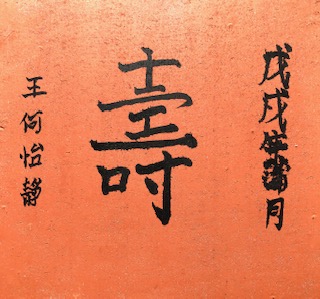 戊戌年蒲月
壽
王何怡静